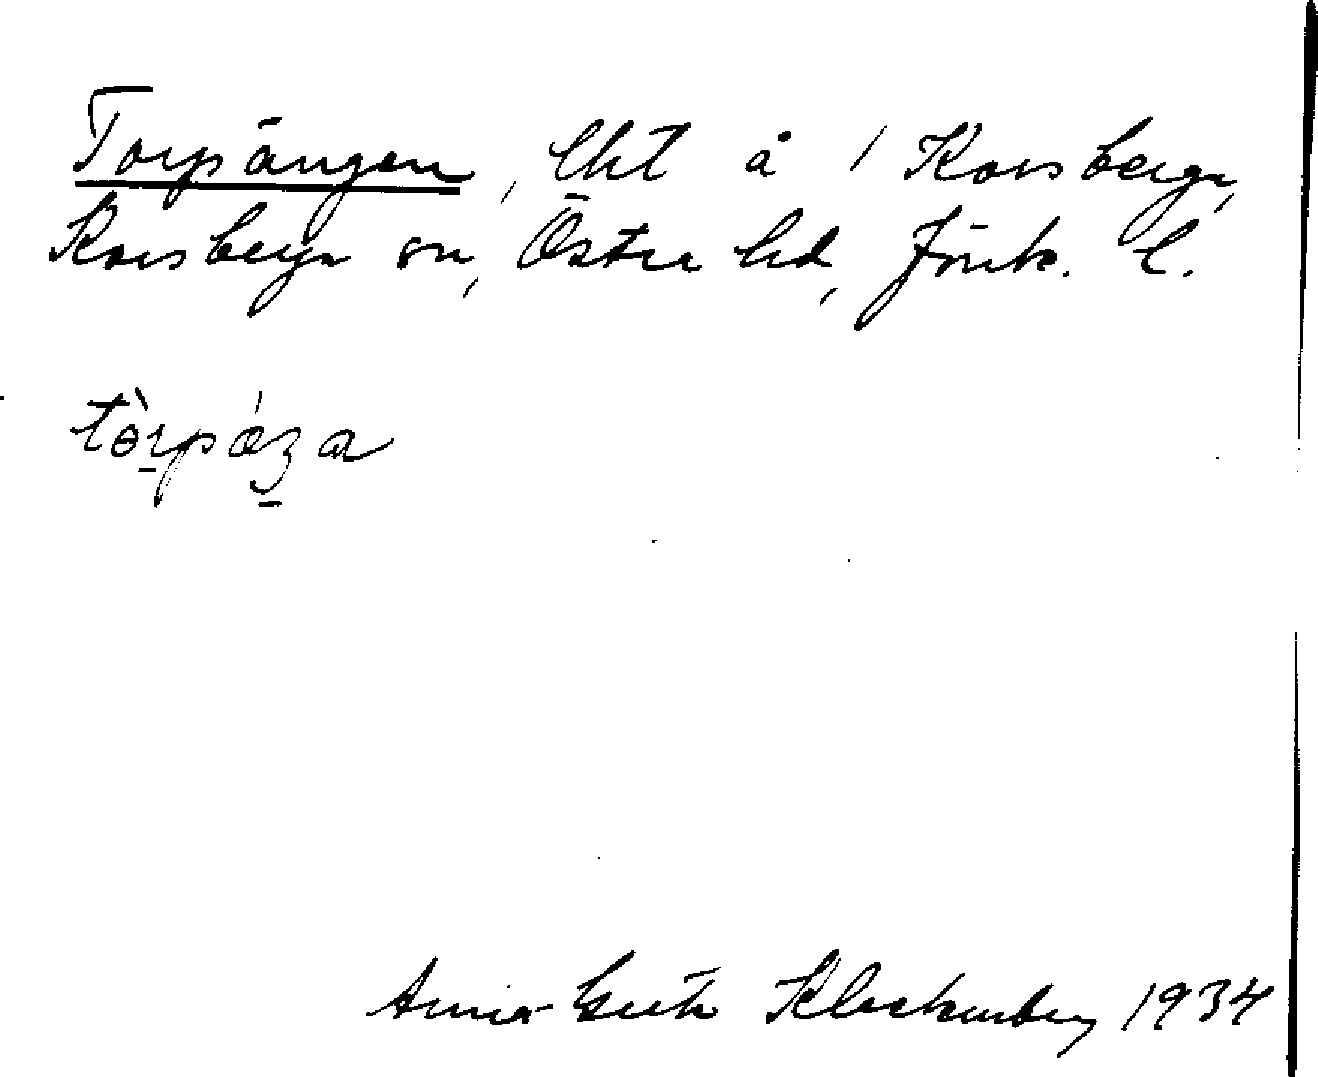 Torpängen, lht å 1 Korsberga,
Korsberga sn, Östra hd, Jönk. l.
Anna-Greta Klockarberg 1934